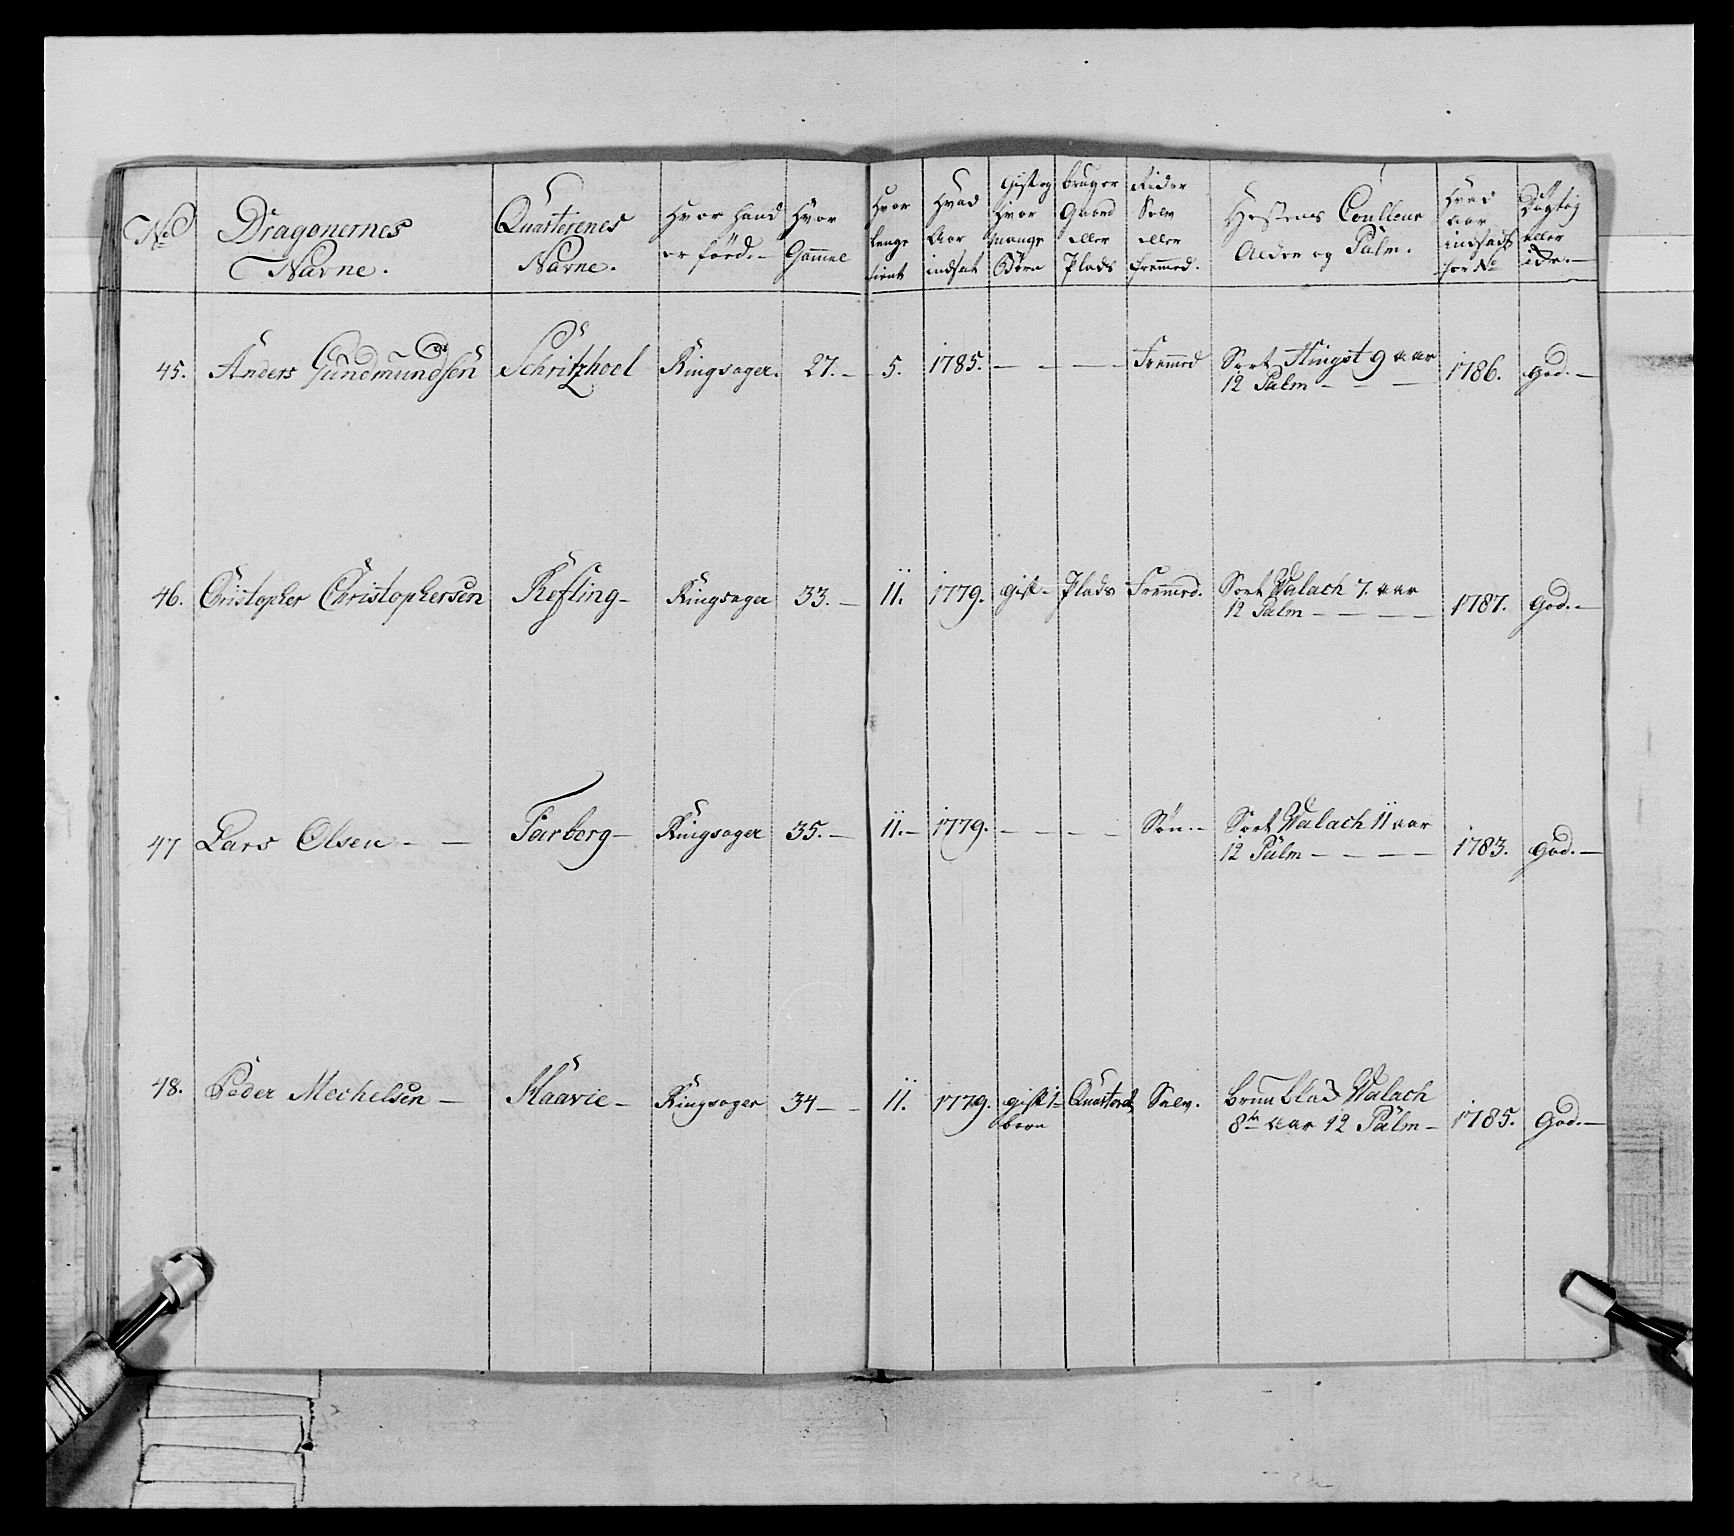 No Dragonernes Navne. Quarterenes Navne. Hvor hand er föed. Hvor Gammel Hvor lenge tient Hvad Aar indsat Gift og hvor mange Börn bruger Gaard eller Plads Rider Selv eller fremed. Hestens Coulleur Alder og Palm. Hvad aar indsadt for No Dygtig eller ide.
45. Anders Gundmundsen Schritzhoel Ringsager. 27. 5. 1785. Fremed Sort Hingst 9 aar 1786. god.
12 Palm
46. Christopher Christophersen Refling Ringsager 33. 11. 1779. gift Plads Fremed. Sort Walach 7. aar 1787. god.
12 Palm
47 Lars Olsen Farberg Ringsager 35. 11. 1779. Søn Sort Walach 11 aar 1783. god.
12 Palm
48. Peder Mechelsen Haavie Ringsager 34 11. 1779. gift 1 Quarteret Selv. brun blad Walach 1785. god.
barn 8te aar 12 Palm